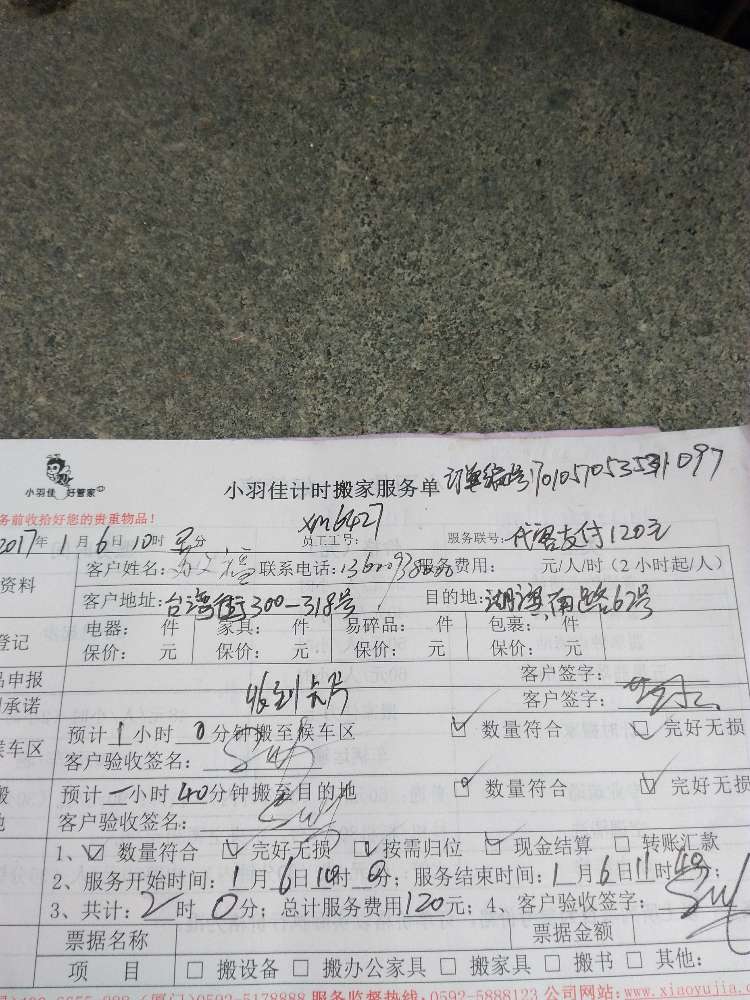 小羽佳 好管家
小羽佳计时搬家服务单 订单编号
务前收拾好您的贵重物品！
2017年1月6日10时 分 员工工号：xm6427 服务联号：代客支付120元
资料 客户姓名： 联系电话： 服务费用： 元/人/时（2小时起/人）
客户地址：台湾街300-318号 目的地：湖滨南路62号
登记 电器： 件 家具： 件 易碎品： 件 包裹： 件
保价： 元 保价： 元 保价： 元 保价： 元
品申报 收到卡片 客户签字：
承诺 客户签字：
候车区 预计1小时0分钟搬至候车区 ☑ 数量符合 ☑ 完好无损
客户验收签名：
搬 预计一小时40分钟搬至目的地 ☑ 数量符合 ☑ 完好无损
地 客户验收签名：
1、☑ 数量符合 ☑ 完好无损 ☑ 按需归位 ☑ 现金结算 □ 转账汇款
2、服务开始时间：1月6日10时0分；服务结束时间：1月6日11时40分；
3、共计：2时0分；总计服务费用120元；4、客户验收签字：
票据名称 票据金额
项 目 □ 搬设备 □ 搬办公家具 □ 搬家具 □ 搬书 □ 其他：
0592-5178888 服务监督热线：0592-5888123 公司网站：www.xiaoyujia.